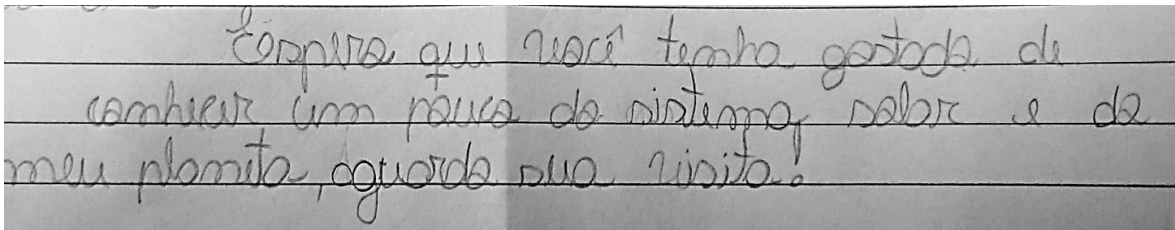 Espero que você tenha gostado de
conhecer um pouco do sistema solar e do
meu planeta, aguardo sua visita!